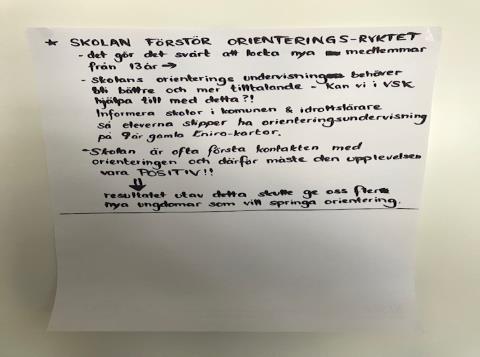 * SKOLAN FÖRSTÖR ORIENTERINGS-RYKTET
- det gör det svårt att locka nya medlemmar
från 13år →
- Skolans orienterings undervisning behöver
bli bättre och mer tilltalande - Kan vi i VSK
hjälpa till med detta?!
Informera skolor i komunen & idrottslärare
så eleverna slipper ha orienteringsundervisning
på 9år gamla Eniro-kartor.
- Skolan är ofta första kontakten med
orienteringen och därför måste den upplevelsen
vara POSITIV!!
⇓
resultatet utav detta skulle ge oss flera
nya ungdomar som vill springa orientering.